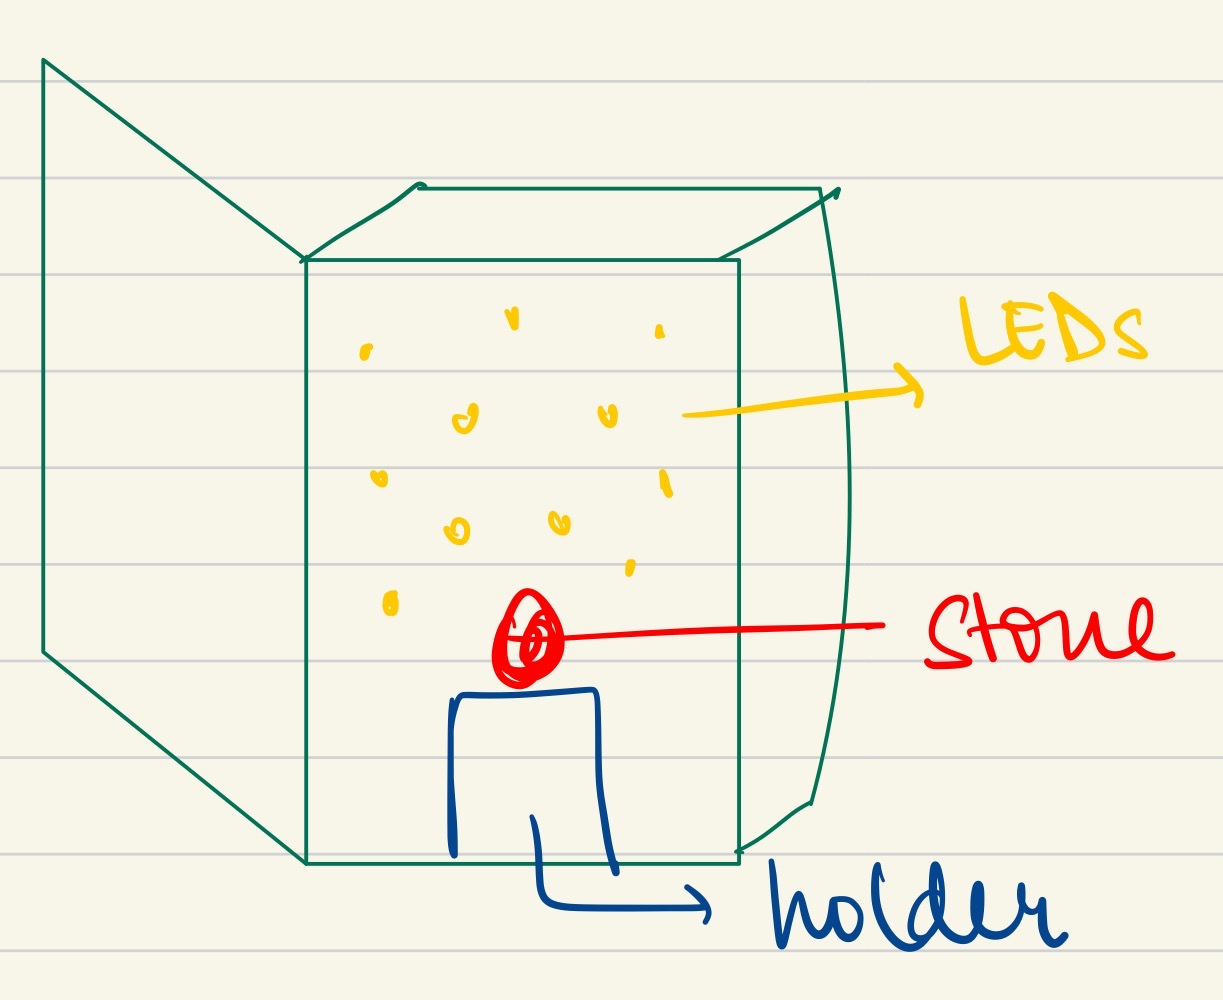 LEDs
stone
holder